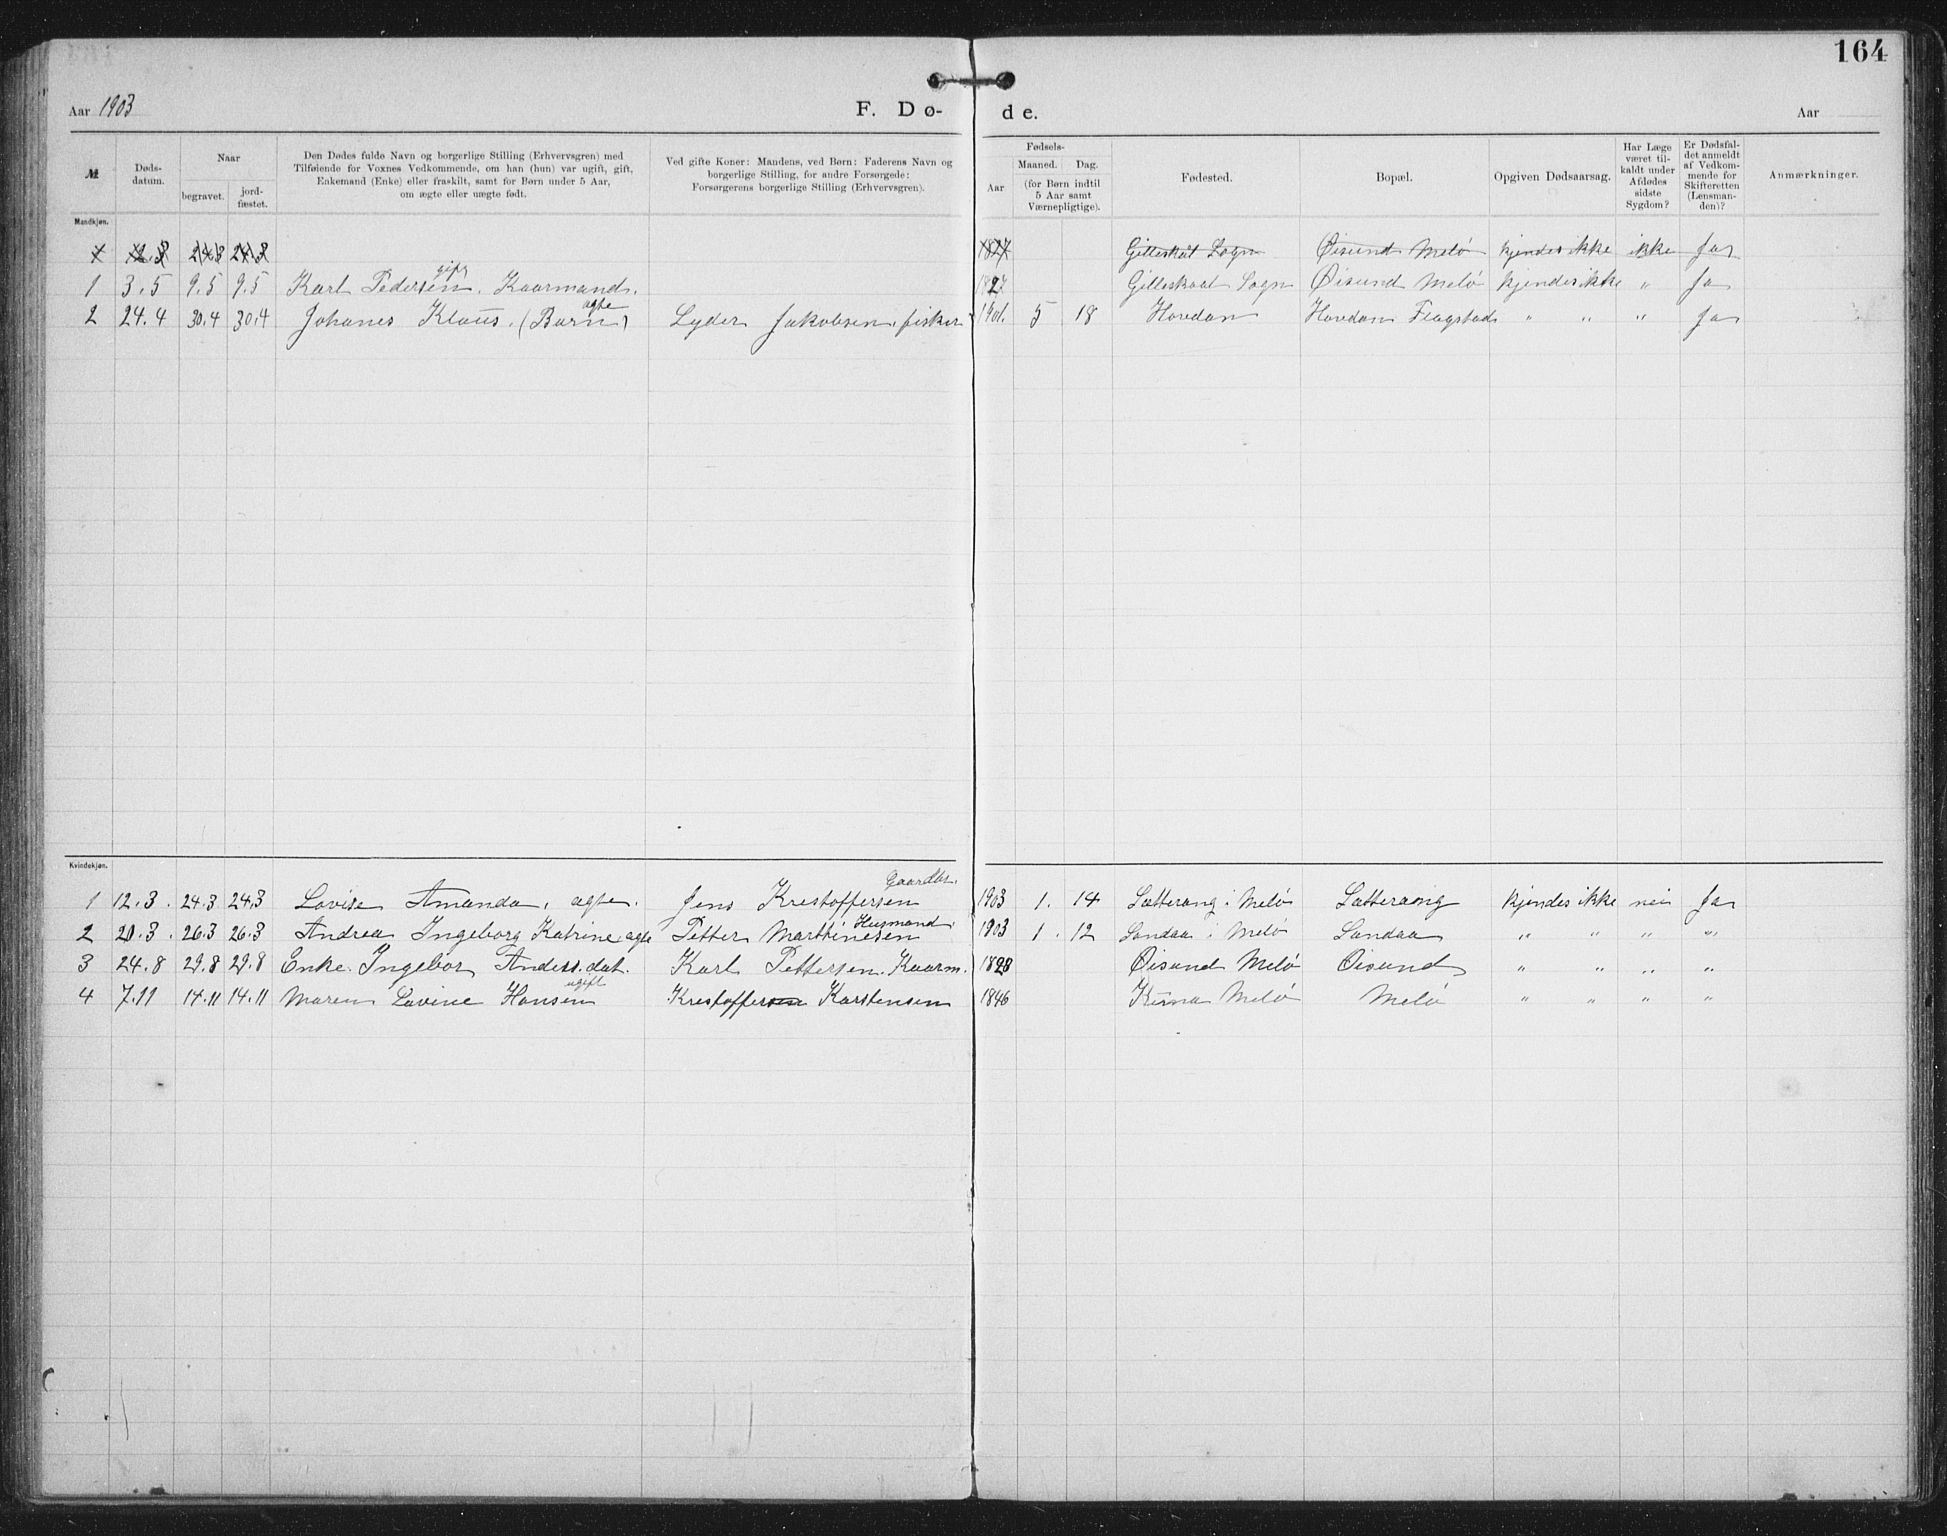 164
Aar 1903 F. Dø- de. Aar
№ Døds-datum. Naar begravet. jord-fæstet. Den Dødes fulde Navn og borgerlige Stilling (Erhvervsgren) med Tilføiende for Voxnes Vedkommende, om han (hun) var ugift, gift, Enkemand (Enke) eller fraskilt, samt for Børn under 5 Aar, om ægte eller uægte født. Ved gifte Koner: Mandens, ved Børn: Faderens Navn og borgerlige Stilling, for andre Forsørgede: Forsørgerens borgerlige Stilling (Erhvervsgren). Fødsels- Aar Maaned. Dag. (for Børn indtil 5 Aar samt Værnepligtige). Fødested. Bopæl. Opgiven Dødsaarsag. Har Læge været til-kaldt under Afdødes sidste Sygdom? Er Dødsfal-det anmeldt af Vedkom-mende for Skifteretten (Lensman-den)? Anmærkninger.
Mandkjøn.
1 12.3 24.3 24.3 1827 Gilleskål Sogn Øisund Melö kjendes ikke ikke Ja
1 3.5 9.5 9.5 Karl Pedersen gift. Kaarmand. 1827 Gilleskaal Sogn Øisund Melö kjendes ikke " Ja
2 24.4 30.4 30.4 Johanes Klaus. (Barn) ægte Lyder Jakobsen fisker 1901. 5 18 Hovdan Hovdan Flagstad " " " Ja
Kvindekjøn.
1 12.3. 24.3 24.3 Lovise Amanda, ægte. Jens Krestoffersen Gaardbr. 1903 1. 14 Sætterang i Melö Sætterang kjendes ikke nei Ja
2 20.3. 26.3 26.3 Andrea Ingeborg Katrine ægte Petter Marthinesen Husmand. 1903 1. 12 Sandaa i Melö Sandaa " " " "
3 24.8 29.8 29.8 Enke. Ingebor Anders.dat. Karl Pettersen. Kaarm. 1828 Øisund Melö Øisund " " " "
4 7.11 14.11 14.11 Maren Lovine Hansen ugift Krestoffersen Karstensen 1846 Kunna Melö Melö " " " "